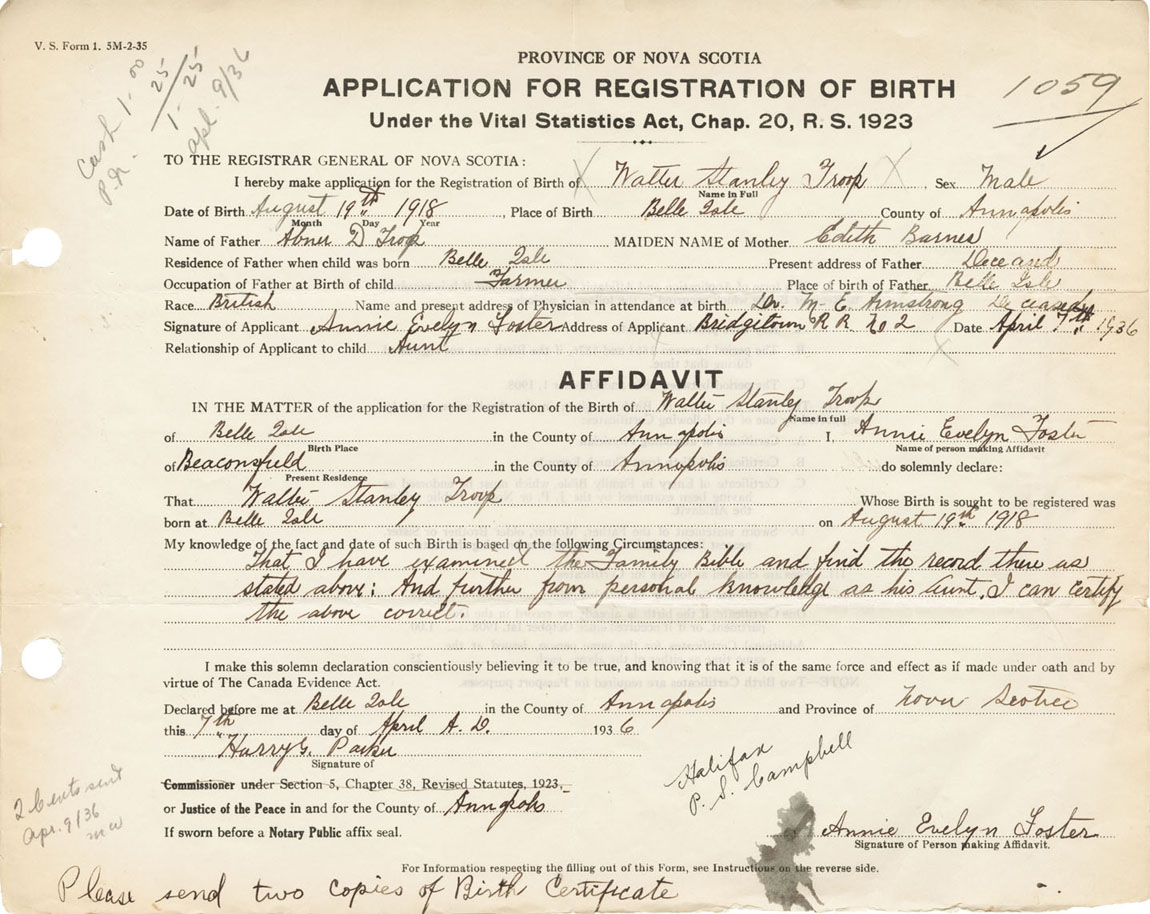 V. S. Form 1. 5M-2-35
Cash 1.00
25/25
P.N.
1
apl. 9/36
PROVINCE OF NOVA SCOTIA
APPLICATION FOR REGISTRATION OF BIRTH
1059
Under the Vital Statistics Act, Chap. 20, R. S. 1923
TO THE REGISTRAR GENERAL OF NOVA SCOTIA:
I hereby make application for the Registration of Birth of X Walter Stanley Troop X Sex Male
Name in Full
Date of Birth August 19th 1918, Place of Birth Belle Isle County of Annapolis
Month Day Year
Name of Father Abner D Troop MAIDEN NAME of Mother Edith Barnes
Residence of Father when child was born Belle Isle Present address of Father Deceased
Occupation of Father at Birth of child Farmer Place of birth of Father Belle Isle
Race British Name and present address of Physician in attendance at birth Dr. M. E. Armstrong Deceased
Signature of Applicant Annie Evelyn Foster Address of Applicant Bridgetown R R No 2 Date April 7th 1936
Relationship of Applicant to child Aunt
AFFIDAVIT
IN THE MATTER of the application for the Registration of the Birth of Walter Stanley Troop
Name in full
of Belle Isle in the County of Annapolis I, Annie Evelyn Foster
Birth Place Name of person making Affidavit
of Beaconsfield in the County of Annapolis do solemnly declare:
Present Residence
That Walter Stanley Troop Whose Birth is sought to be registered was
born at Belle Isle on August 19th 1918
My knowledge of the fact and date of such Birth is based on the following Circumstances:
That I have examined the Family Bible and find the record there as
stated above: And further from personal knowledge as his Aunt, I can certify
the above correct.
I make this solemn declaration conscientiously believing it to be true, and knowing that it is of the same force and effect as if made under oath and by
virtue of The Canada Evidence Act.
Declared before me at Belle Isle in the County of Annapolis and Province of Nova Scotia
this 7th day of April A. D. 1936
Harry G. Parker
Signature of
Halifax
P. S. Campbell
Commissioner under Section 5, Chapter 38, Revised Statutes, 1923,
or Justice of the Peace in and for the County of Annapolis
2 Certs sent
Apr. 9/36
If sworn before a Notary Public affix seal.
Annie Evelyn Foster
Signature of Person making Affidavit.
For Information respecting the filling out of this Form, see Instructions on the reverse side.
Please send two copies of Birth Certificate